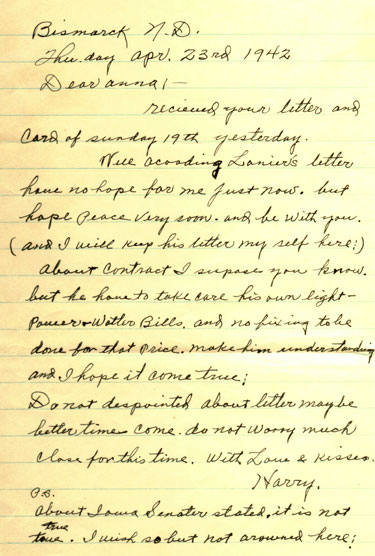 Bismarck N.D.
Thu. day apr. 23rd 1942
Dear anna;—
recieved your letter and
Card of sunday 19th yesterday.
Will acoading Lanier's letter
have no hope for me just now. but
hope Peace very soon. and be with you.
(and I will keep his letter my self here;)
about Contract I supose you know.
but he have to take care his own light-
Power & Watter Bills. and no fixing to be
done for that Price. make him understanding
and I hope it come true;
Do not despointed about letter maybe
better time come. do not worry much
Close for this time. With Love & Kisses.
Harry.
P.S.
about Iowa Senater stated, it is not
true
true. I wish so but not arowned here;